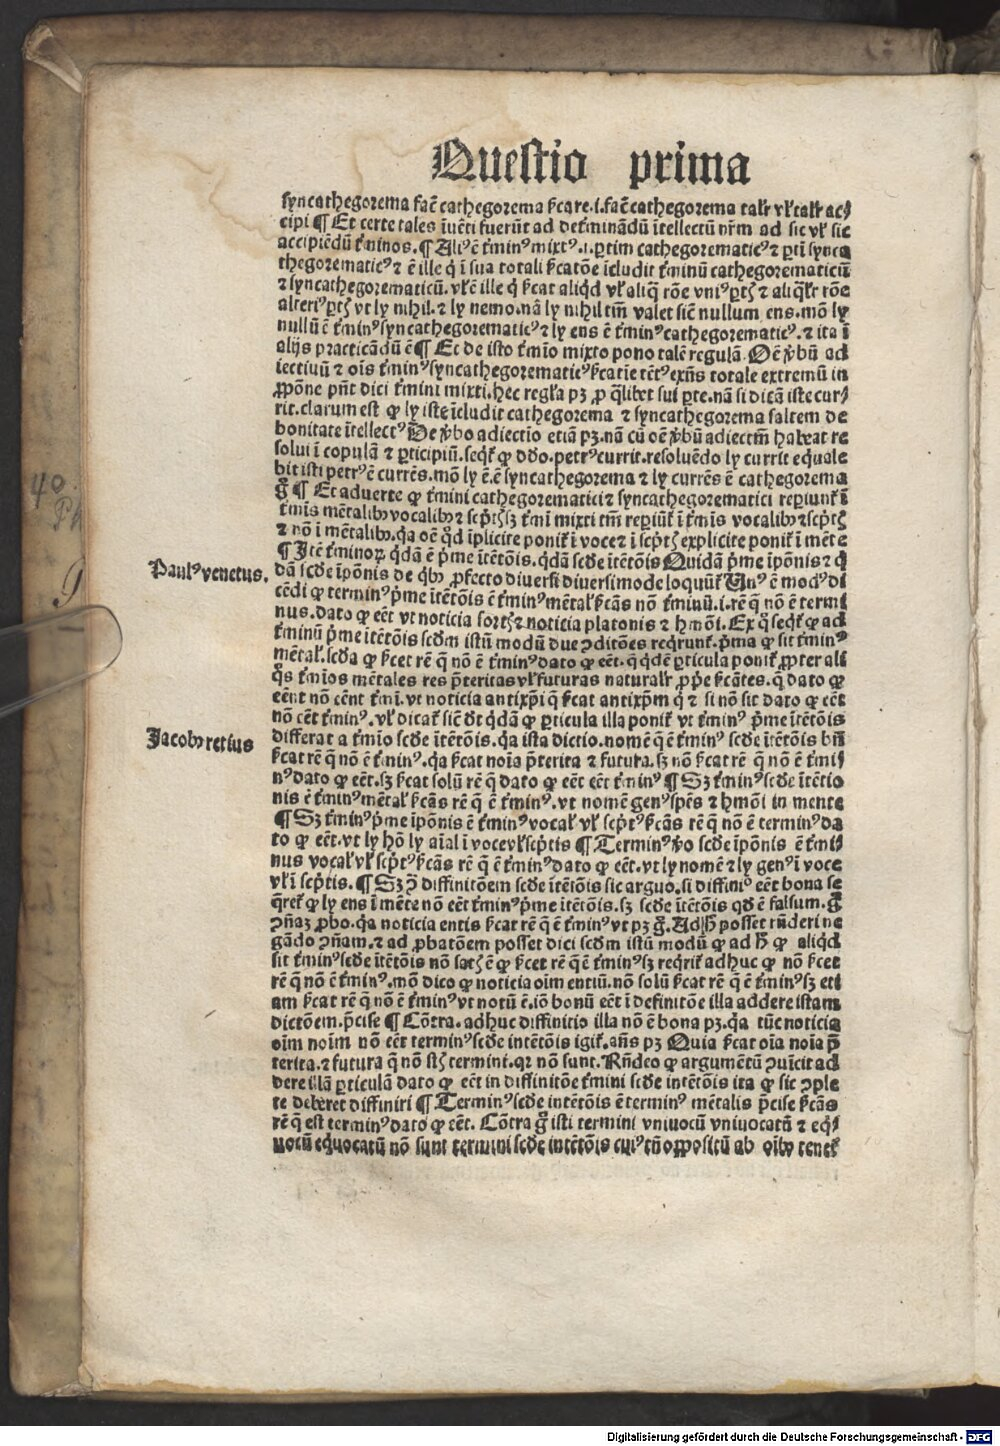 Questio prima
syncathegorema facē cathegorema ſcare.i.facē cathegorema talr̄ vl̓ talr̄ ac
cipi ¶ Et certe tales īuēti fuerūt ad det̓minādū ītellectū nr̄m ad sic vl̓ sic
accipiēdū t̓minos. ¶ Aliꝰ ē t̓minꝰ mixtꝰ .i. ꝑtim cathegorematicꝰ ⁊ ꝑtī synca
thegorematicꝰ ⁊ ē ille q̇ ī sua totali ſcatōe īcludit t̓minū cathegorematicū
⁊ syncathegorematicū. vl̓ ē ille q̇ ſcat aliqd̓ vl̓ aliq̄ rōe vniꝰ ꝑtꝭ ⁊ aliqlr̄ rōe
alteriꝰ ꝑtꝭ vt ly nihil. ⁊ ly nemo. nā ly nihil tm̄ valet sic̄ nullum ens. mō ly
nullū ē t̓minꝰ syncathegorematicꝰ ⁊ ly ens ē t̓minꝰ cathegorematicꝰ. ⁊ ita ī
alijs practicādū ē ¶ Et de isto t̓mīo mixto pono talē regulā. Oē ꝟbū ad
iectiuū ⁊ oīs t̓minꝰ syncathegorematicꝰ ſcatiē tētꝰ exn̄s totale extremū in
ꝓpōne pn̄t dici t̓mini mixti. hec regla pꝫ ꝓ q̄libet sui ꝑte. nā si dicā iste cur
rit. clarum est ꝙ ly iste īcludit cathegorema ⁊ syncathegorema saltem de
bonitate ītellectꝰ De ꝟbo adiectīo etiā pꝫ. nā cū oē ꝟbū adiectm̄ habeat re
solui ī copulā ⁊ ꝑticipiū. seqt̓ ꝙ dō. petrꝰ currit. resoluēdo ly currit equale
bit isti petrꝰ ē currēs. mō ly ē. ē syncathegorema ⁊ ly currēs ē cathegorema
g̊ ¶ Et aduerte ꝙ t̓mini cathegorematici ⁊ syncathegorematici reꝑiunt̓ ī
t̓mīs mētalibꝫ vocalibꝫ ⁊ scp̄tꝭ sꝫ t̓mī mixti tm̄ reꝑiūt̓ ī t̓mīs vocalibꝫ ⁊ scp̄tꝭ
⁊ nō ī mētalibꝫ. qa oē qd̓ īplicite ponit̓ ī voce ⁊ ī scp̄tꝭ explicite ponit̓ ī mēte
¶ Itē t̓minoꝝ qdā ē pͥme ītētōis. qdā scd̓e ītētōis Quidā pͥme īpōnis ⁊ q
dā scd̓e īpōnis de qbꝫ ꝓfecto diuersi diuersimode loquūt̓ Vnꝰ ē modꝰ di
Paulꝰ venetus.
cēdi ꝙ terminꝰ pͥme ītētōis ē t̓minꝰ mētal̓ ſcās nō t̓minū .i. rē q̄ nō ē termi
nus. dato ꝙ eēt vt noticia sortꝭ ⁊ noticia platonis ⁊ hmōi. Ex q̊ seqt̓ ꝙ ad
t̓minū pͥme ītētōis scd̓m istū modū due ꝯditōes reqrunt̓. pͥma ꝙ sit t̓minꝰ
mētal̓. scd̓a ꝙ ſcet rē q̄ nō ē t̓minꝰ dato ꝙ eēt. q̄ qdē ꝑticula ponit̓ ꝓpter ali
qs t̓mīos mētales res pͥteritas vl̓ futuras naturalr̄ ꝓpͥe ſcātes. q̄ dato ꝙ
eēnt nō eēnt t̓mī. vt noticia antixp̄i q̄ ſcat antixp̄m q̇ ⁊ si nō sit dato ꝙ eēt
nō eēt t̓minꝰ. vl̓ dicat̓ sic̄ dt̓ qdā ꝙ ꝑticula illa ponit̓ vt t̓minꝰ pͥme ītētōis
Jacobꝰ retius
differat a t̓mīo scd̓e ītētōis. qa ista dictio. nomē q̄ ē t̓minꝰ scd̓e ītētōis bn̄
ſcat rē q̄ nō ē t̓minꝰ. qa ſcat noīa pͥterita ⁊ futura. sꝫ nō ſcat rē q̄ nō ē t̓mi
nꝰ dato ꝙ eēt. sꝫ ſcat solū rē q̄ dato ꝙ eēt eēt t̓minꝰ ¶ Sꝫ t̓minꝰ scd̓e ītētio
nis ē t̓minꝰ mētal̓ ſcās rē q̄ ē t̓minꝰ. vt nomē genꝰ spēs ⁊ hmōi in mente
¶ Sꝫ t̓minꝰ pͥme īpōnis ē t̓minꝰ vocal̓ vl̓ scp̄tꝰ ſcās rē q̄ nō ē terminꝰ da
to ꝙ eēt. vt ly hō ly aīal ī voce vl̓ scp̄tis ¶ Terminꝰ ꝟo scd̓e īpōnis ē t̓mi
nus vocal̓ vl̓ scp̄tꝰ ſcās rē q̄ ē t̓minꝰ dato ꝙ eēt. vt ly nomē ⁊ ly genꝰ ī voce
vl̓ ī scp̄tis. ¶ Sꝫ ꝯ diffinitōem scd̓e ītētōis sic arguo. si diffinio eēt bona se
q̄ret̓ ꝙ ly ens ī mēte nō eēt t̓minꝰ pͥme ītētōis. sꝫ scd̓e ītētōis qd̓ ē falsum. g̊
ꝯn̄az ꝓbo. qa noticia entis ſcat rē q̄ ē t̓minꝰ vt pꝫ g̊. Ad ħ posset rn̄deri ne
gādo ꝯn̄am. ⁊ ad ꝓbatōem posset dici scd̓m istū modū ꝙ ad ħ ꝙ aliqd̓
sit t̓minꝰ scd̓e ītētōis nō satꝭ ē ꝙ ſcet rē q̄ ē t̓minꝰ sꝫ reqrit̓ adhuc ꝙ nō ſcet
rē q̄ nō ē t̓minꝰ. mō dico ꝙ noticia oīm entiū. nō solū ſcat rē q̄ ē t̓minꝰ sꝫ eti
am ſcat rē q̄ nō ē t̓minꝰ vt notū ē. iō bonū eēt ī definitōe illa addere istam
dictōem. p̄cise ¶ Cōtra. adhuc diffinitio illa nō ē bona pꝫ. qa tūc noticia
oīm noīm nō eēt terminꝰ scd̓e intētōis igit̓. an̄s pꝫ Quia ſcat oīa noīa pͥ
terita. ⁊ futura q̄ nō st̄ termini. qꝛ nō sunt. Rn̄deo ꝙ argumētū ꝯuīcit ad
dere illā ꝑticulā dato ꝙ eēt in diffinitōe t̓mini scd̓e intētōis ita ꝙ sic ꝯple
te deberet diffiniri ¶ Terminꝰ scd̓e intētōis ē terminꝰ mētalis p̄cise ſcās
rē q̄ est terminꝰ dato ꝙ eēt. Cōtra g̊ isti termini vniuocū vniuocatū ⁊ eq
uocū equocatū nō sunt termini scd̓e intētōis cuiꝰ tn̄ oppositū ab oībꝫ tenet̓